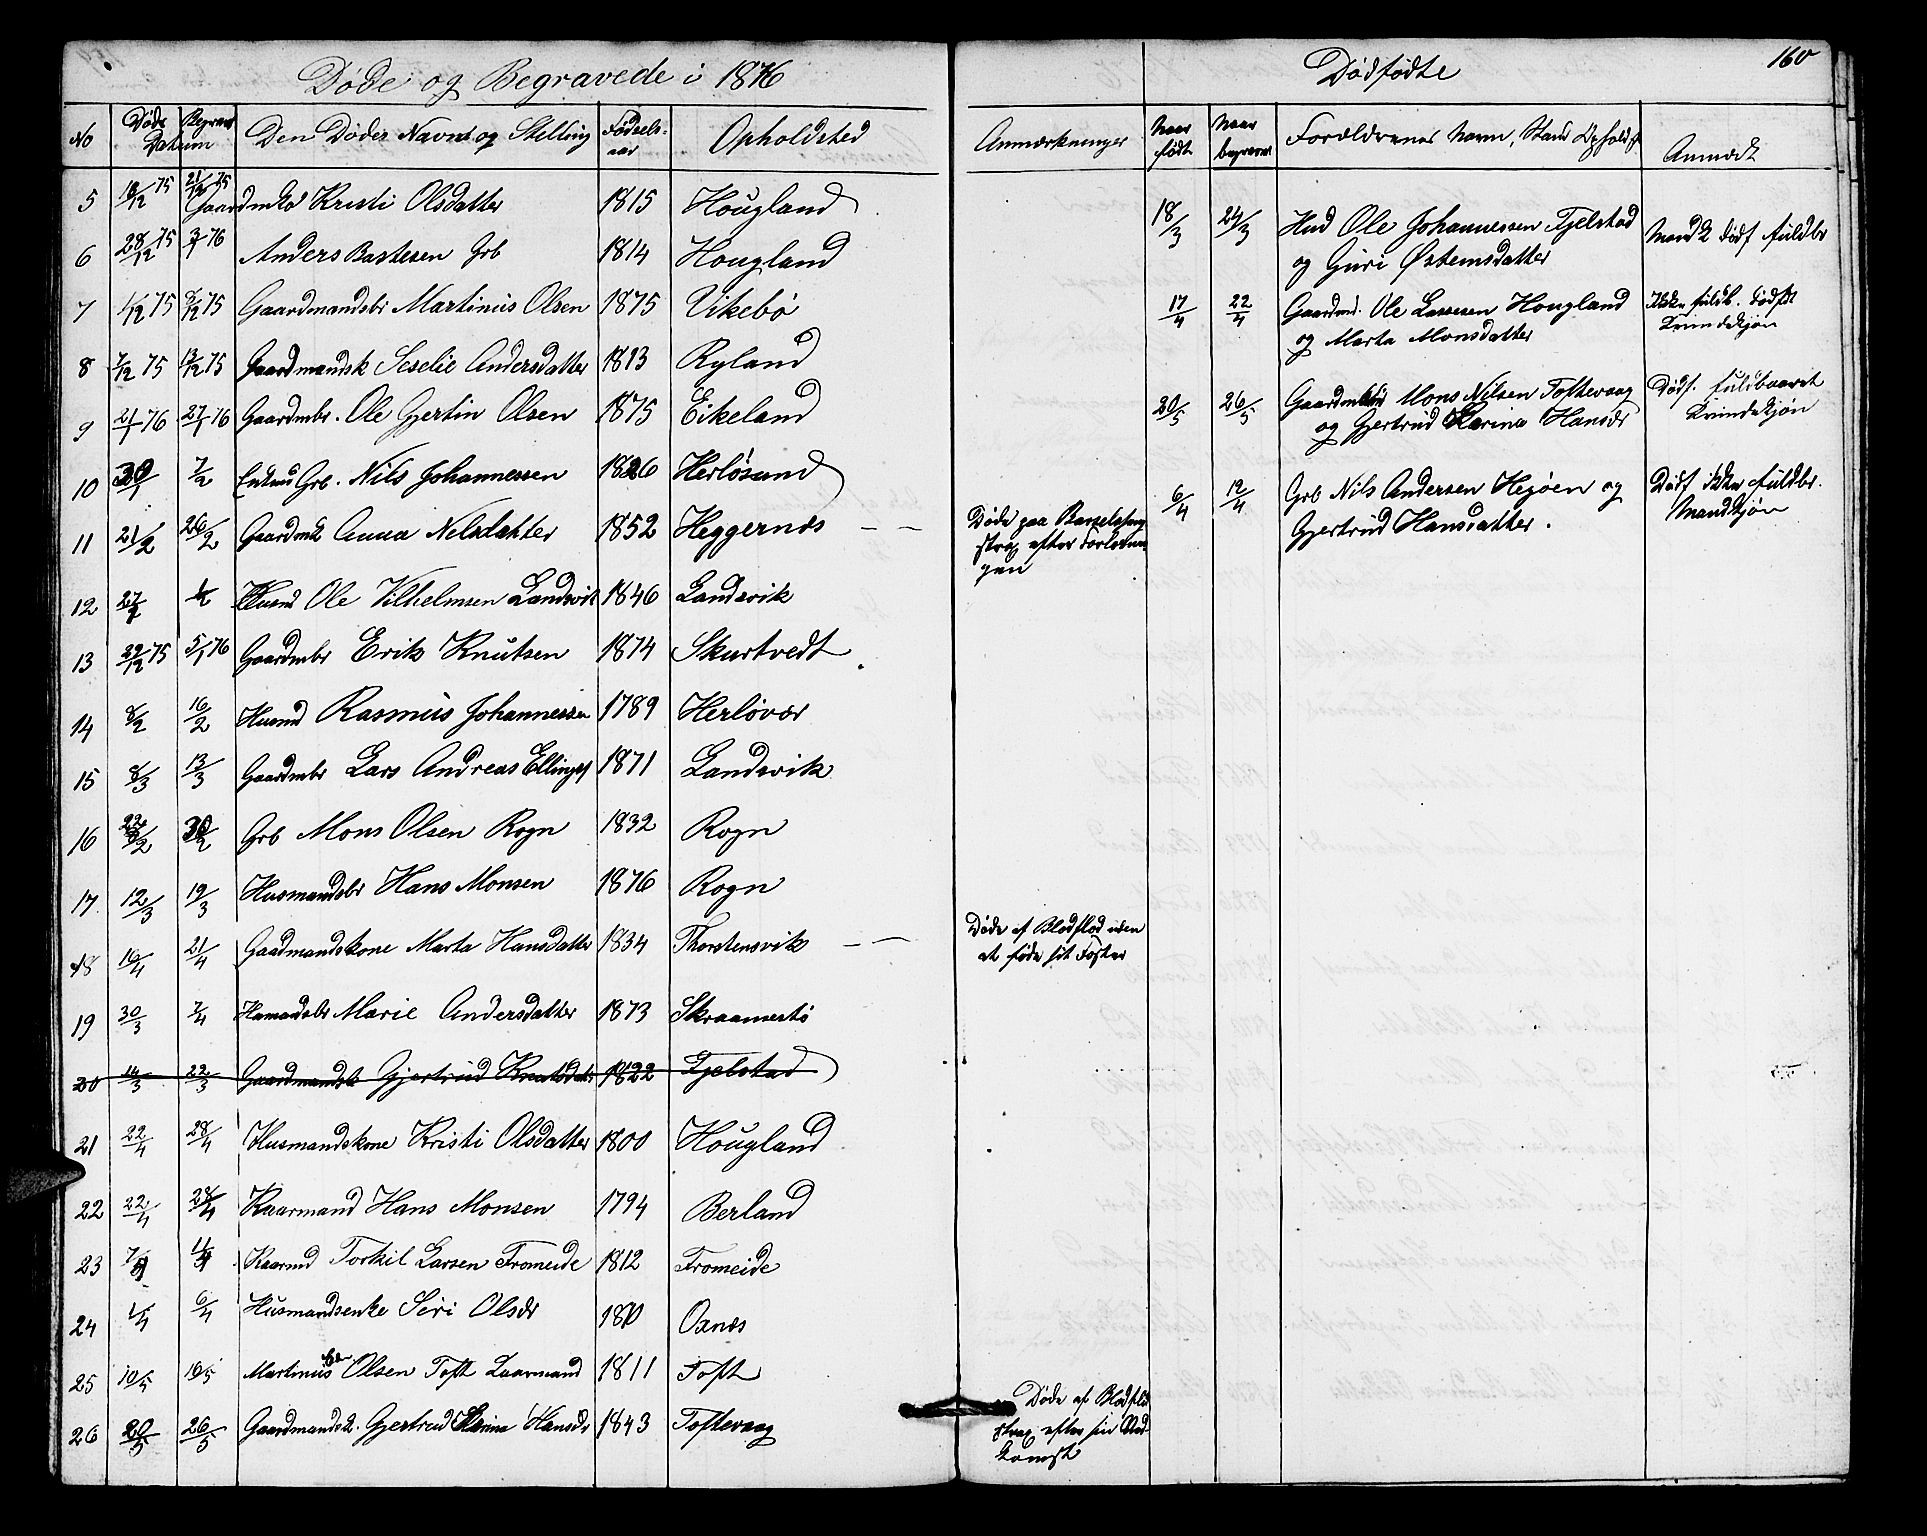 Døde og Begravede i 1876
No Døds Begrav Datum Den Dødes Navn og Stilling Fødselsaar Opholdsted
5 18/12 75 21/12 75 Gaardmko Kristi Olsdatter 1815 Hougland
6 28/12 75 3/1 76 Anders Bastesen Grb 1814 Hougland
7 1/12 75 8/12 75 Gaardmandsbr Martinus Olsen 1875 Vikebø
8 7/12 75 13/12 75 Gaardmandsk Seselie Andersdatter 1813 Ryland
9 21/1 76 27/1 76 Gaardmbr. Ole Gjertin Olsen 1875 Eikeland
10 30/1 7/2 Enkmd Grb. Nils Johannessen 1826 Herløsund
11 21/2 26/2 Gaardmk Anna Nelsdatter 1852 Heggernæs — —
12 27/2 Husmd Ole Vilhelmsen Landsvik 1846 Landsvik
13 29/12 75 5/1 76 Gaardmbr Erik Knutsen 1874 Skurtvedt
14 8/2 16/2 Husmd Rasmus Johannessen 1789 Herløvær
15 8/3 13/3 Gaardmbr Lars Andreas Ellings 1871 Landsvik
16 30/2 Grb Mons Olsen Rogn 1832 Rogn
17 12/3 19/3 Husmandsbr Hans Monsen 1876 Rogn
18 16/4 21/4 Gaardmandskone Marta Hansdatter 1834 Thorstensvik — —
19 30/3 7/4 Hsmandsbr Marie Andersdatter 1873 Skraamestø
20 14/3 22/3 Gaardmandsk Gjertrud Knutsdatr 1822 Tjelstad
21 22/4 28/4 Husmandskone Kristi Olsdatter 1800 Hougland
22 22/4 28/4 Kaarmand Hans Monsen 1794 Berland
23 Kaarmd Torkil Larsen Fromeide 1812 Fromeide
24 1/4 6/4 Husmandsenke Siri Olsdr Oxnæs
25 10/5 16/5 Martinus Olsen Toft Kaarmand 1811 Toft
26 20/5 26/5 Gaardmandsk. Gjertrud Karina Hansdr 1843 Toftevaag
160
Dødfødte
Anmærkninger Naar født Naar begravet Forældrenes Navn, Stand Opholdst Anmædt
18/3 24/3 Hmd Ole Johannessen Tjelstad
og Guri Østensdatter
Mandk dødf fuldbr
17/4 22/4 Gaardmd. Ole Lassesen Hougland
og Marta Monsdatter
Ikke fuldb. dødft
Kvindekjøn
20/5 26/5 Gaardmand Mons Nilsen Toftevaag
og Gjertrud Karina Hansdr
Dødf. fuldbaaret
Kvindekjøn
6/4 12/4 Grb Nils Andersen Hejøen og
Gjertrud Hansdatter.
Dødf ikke fuldbr.
Mandkjøn
Døde paa Barselseng
strax efter Forløsnin
gen
Døde af Blodflod uden
at føde sit Foster
Døde af Blodflod
strax efter sin Ned
komst